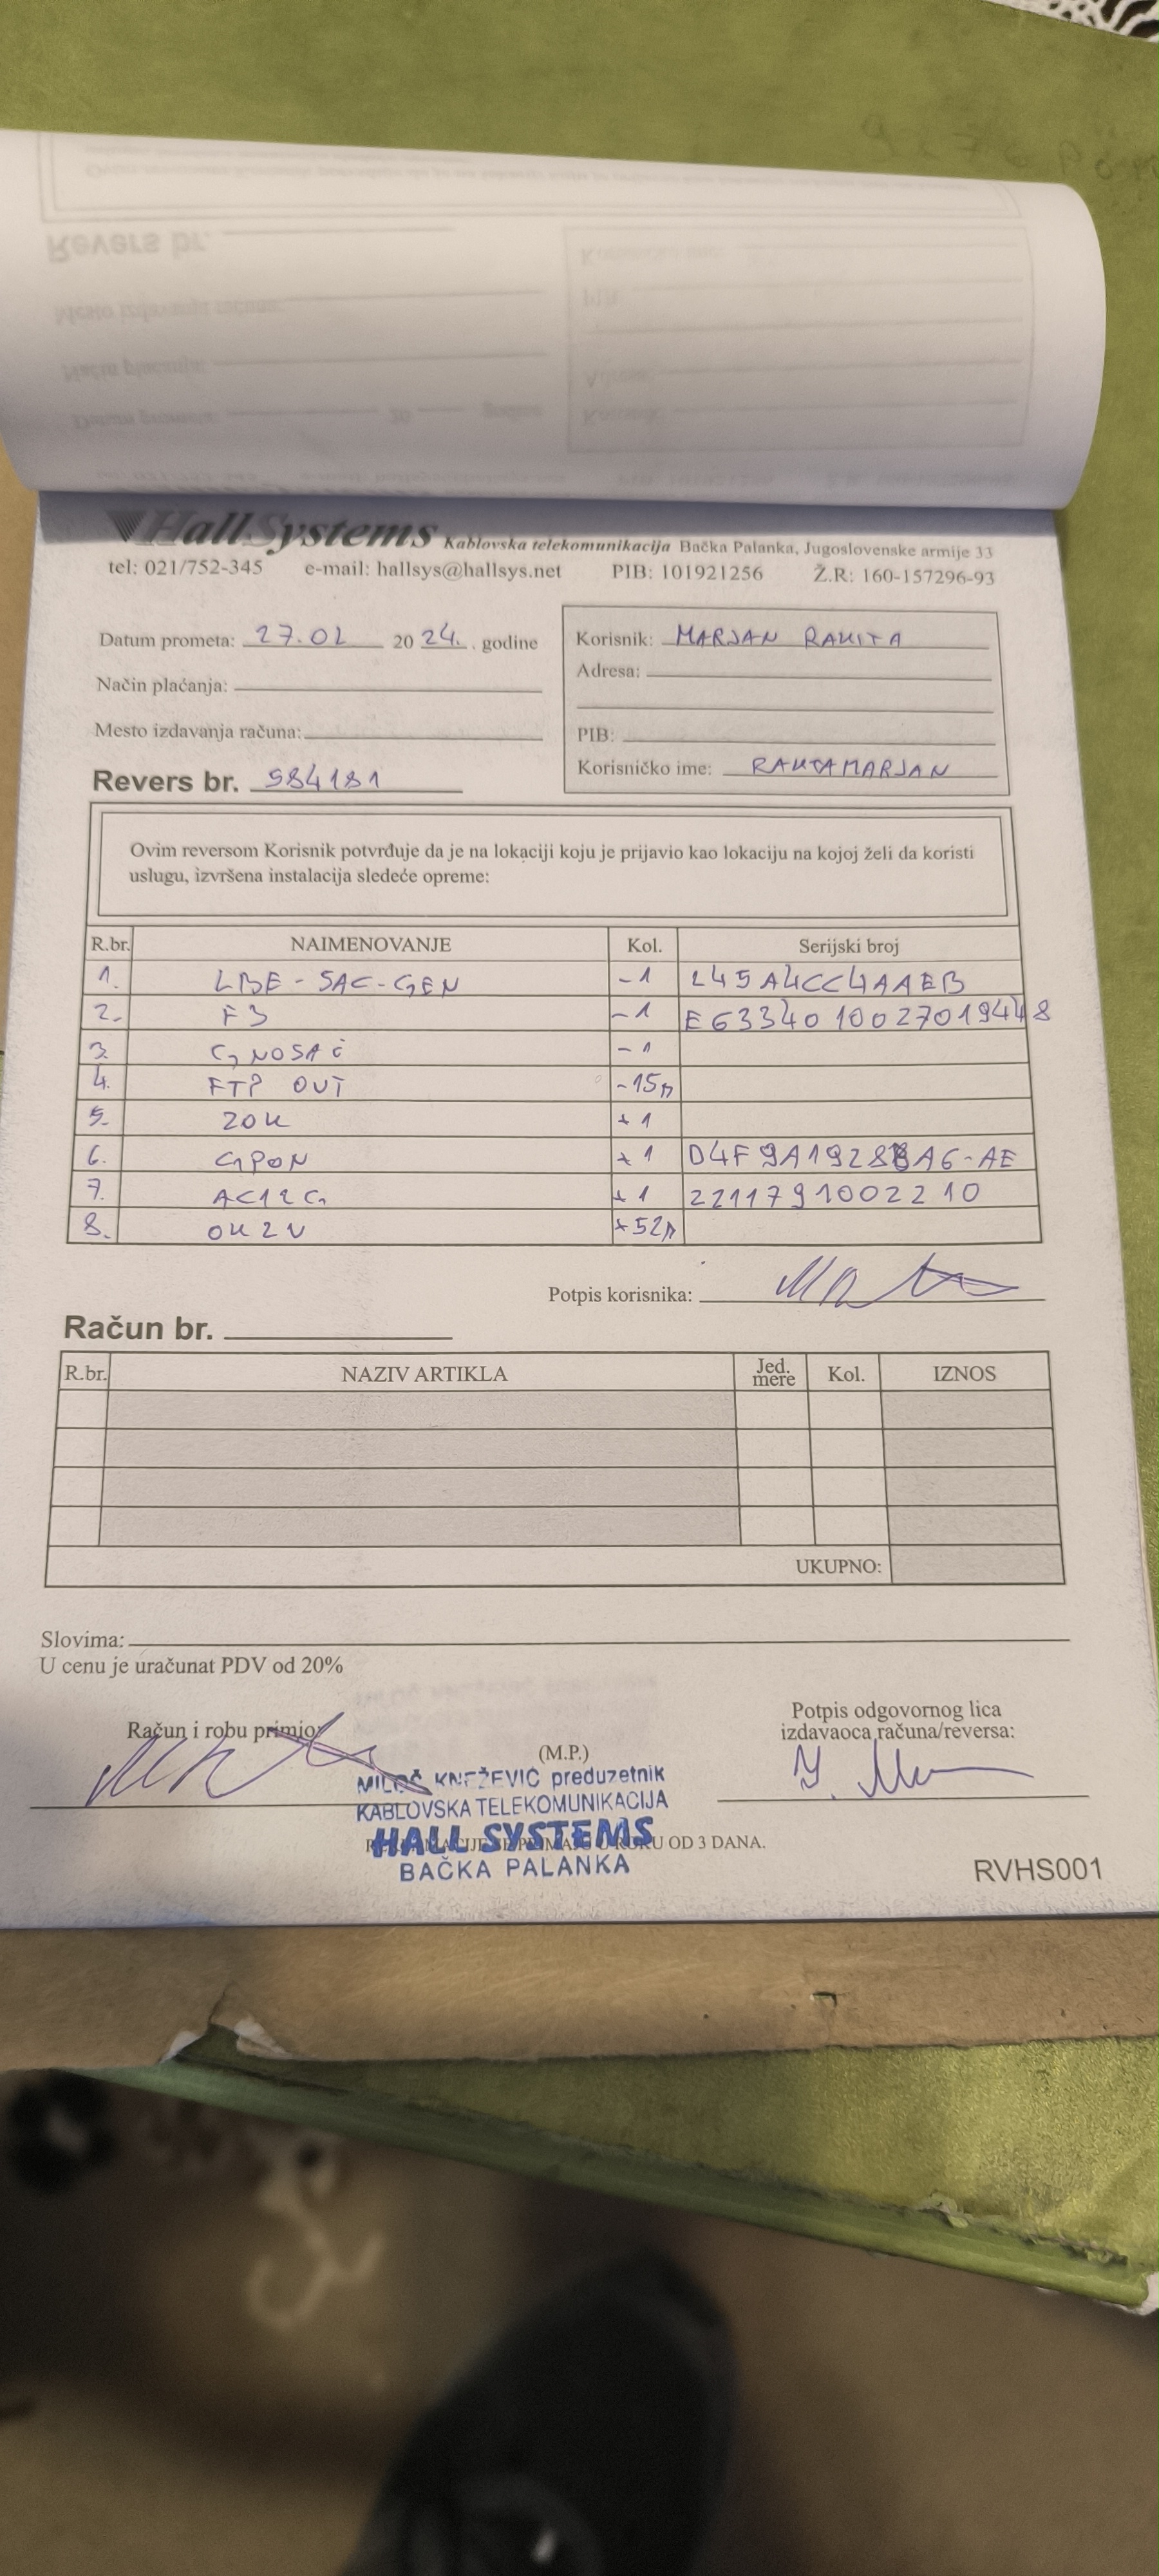 HallSystems Kablovska telekomunikacija Bačka Palanka, Jugoslovenske armije 33
tel: 021/752-345 e-mail: hallsys@hallsys.net PIB: 101921256 Ž.R: 160-157296-93
Datum prometa: 27.02 20 24. . godine
Način plaćanja:
Mesto izdavanja računa:
Revers br. 984181
Korisnik: MARJAN RAKITA
Adresa:
PIB:
Korisničko ime: RAKITAMARJAN
Ovim reversom Korisnik potvrđuje da je na lokaciji koju je prijavio kao lokaciju na kojoj želi da koristi
uslugu, izvršena instalacija sledeće opreme:
R.br. NAIMENOVANJE Kol. Serijski broj
1. LBE-5AC-GEN -1 245A4CC4AAEB
2. F3 -1 E6334010027019448
3. G NOSAČ -1
4. FTP OUT -15m
5. ZOK +1
6. GPON +1 D4F9A1928BA6-AE
7. AC12G +1 2211791002210
8. OK2V +52m
Potpis korisnika:
Račun br.
R.br. NAZIV ARTIKLA Jed. mere Kol. IZNOS
UKUPNO:
Slovima:
U cenu je uračunat PDV od 20%
Račun i robu primio:
(M.P.)
Potpis odgovornog lica
izdavaoca računa/reversa:
MILOŠ KNEŽEVIĆ preduzetnik
KABLOVSKA TELEKOMUNIKACIJA
HALL SYSTEMS
BAČKA PALANKA
U ROKU OD 3 DANA.
RVHS001